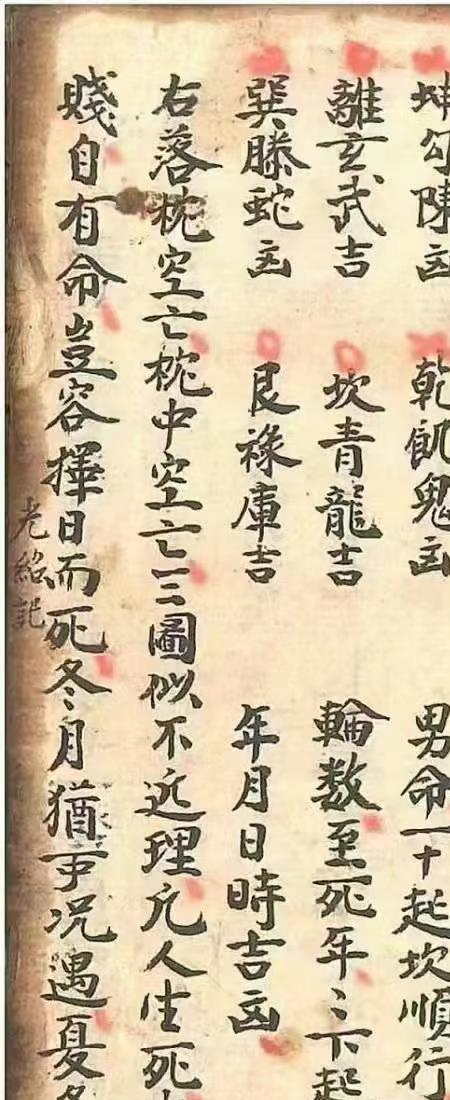 坤勾陳凶　乾飢鬼凶　男命一十起坎順行
離玄武吉　坎青龍吉　輪数至死年〻下起
巽滕蛇凶　艮祿庫吉　年月日時吉凶
右落枕空亡枕中空亡三圖似不近理凡人生死
賤自有命豈容擇日而死冬月猶可况遇夏
老紹記